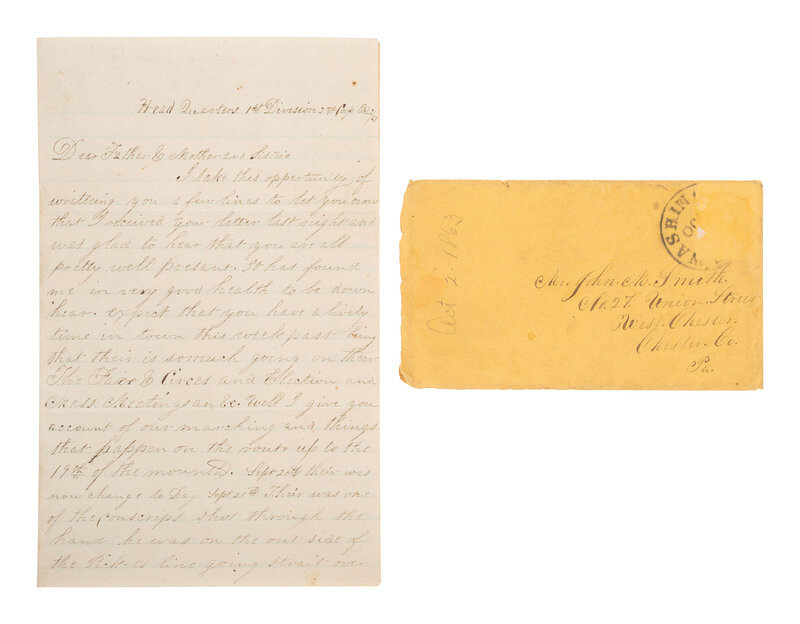 Head Quarters 1st Division 2nd Corp Oct 2/63
Dear Father & Mother and Sisters
I take this opportunity of
writteing you a few lines to let you now
that I received your letter last night and
was glad to hear that you are all
pretty well presant. It has found
me in very good health to be down
hear. expect that you have a lively
time in town this week past being
that their is somuch going on their
The Fare & Circes and Election and
Mess Meetings an &c. Well I give you
account of our marching and things
that happen on the rout up to the
19th of the mounth. Sept 20th their was
now change to Day Sept 21th Their was one
of the conscrips shot through the
hand he was on the out side of
the Pickets line going strait over
Oct 2-1863
WASHIN
Mr. John M. Smith.
No. 27. Union. Street
West. Chester.
Chester. Co.
Pa.